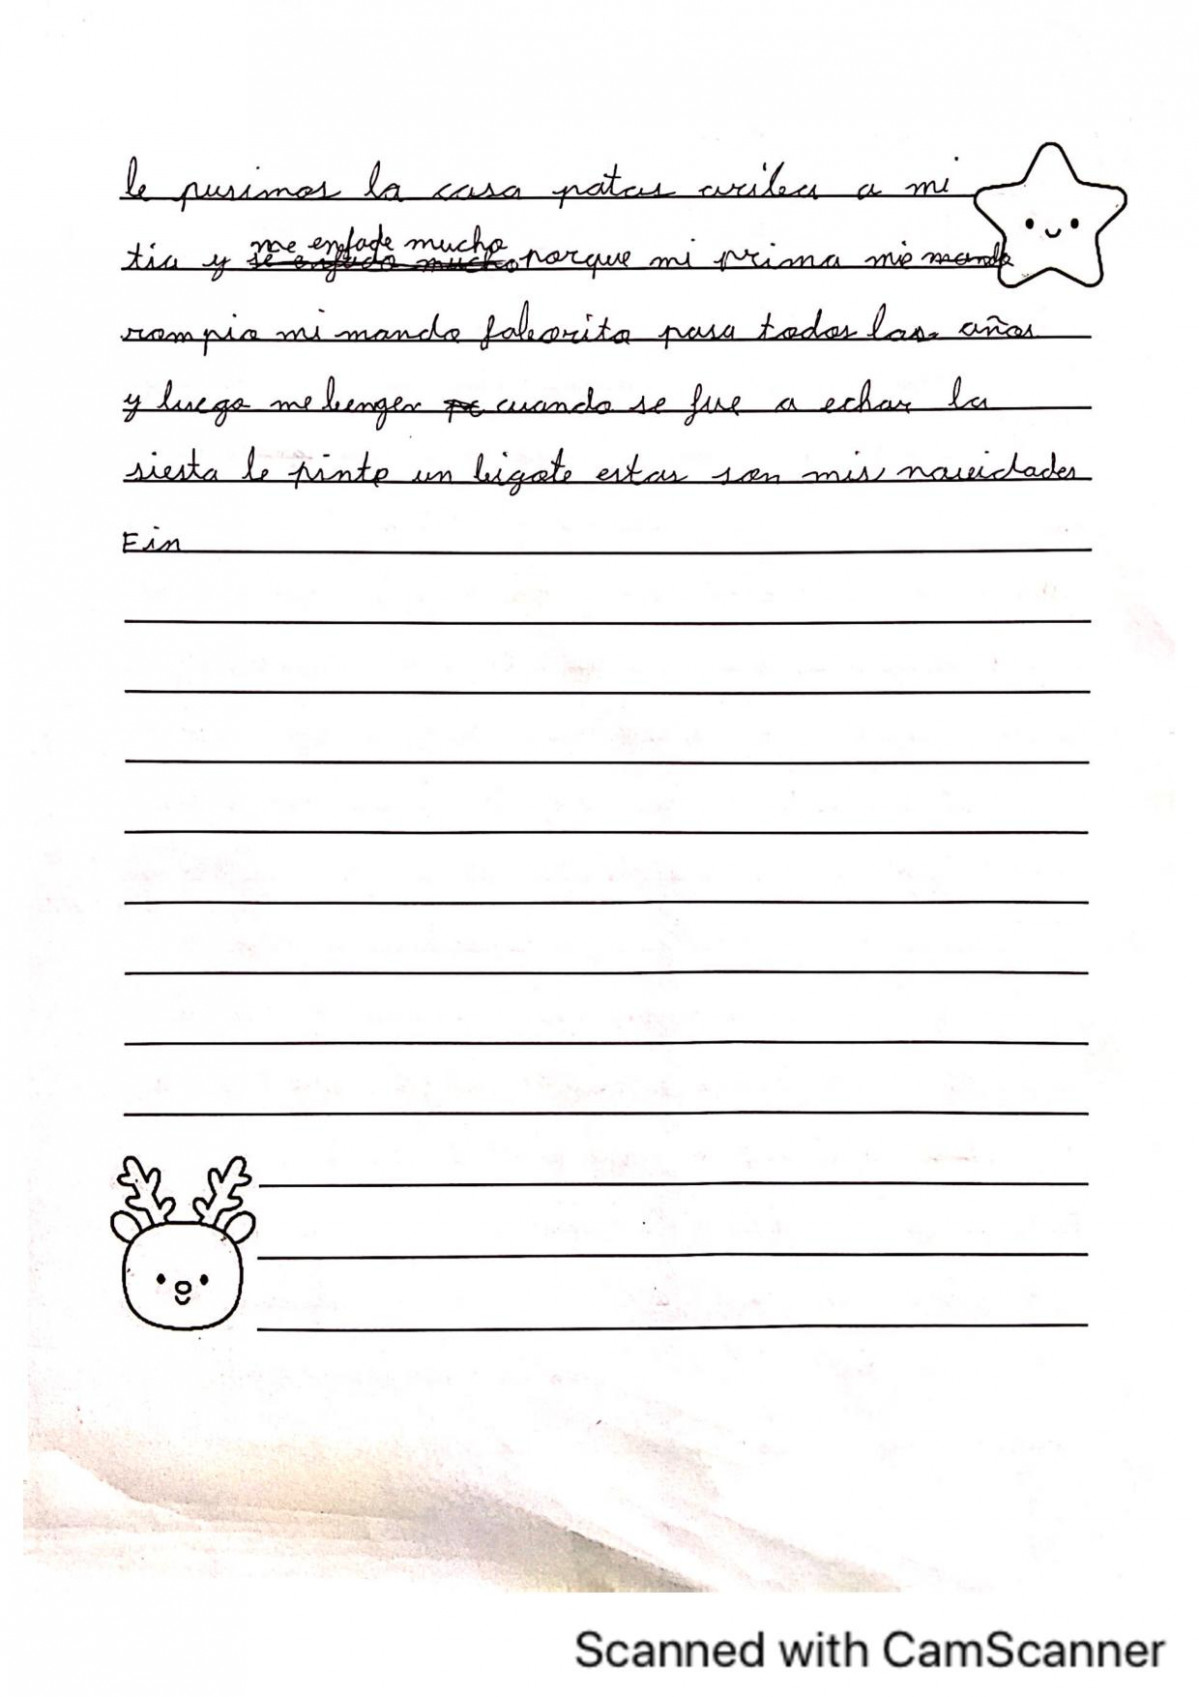 le pusimos la casa patas ariba a mi
me enfade mucho
tia y se enfado mucho porque mi prima me mando
rompio mi mando faborito pasa todos los años
y luego me benge cuando se fue a echar la
siesta le pinte un bigote estas son mis navidades
Fin
Scanned with CamScanner